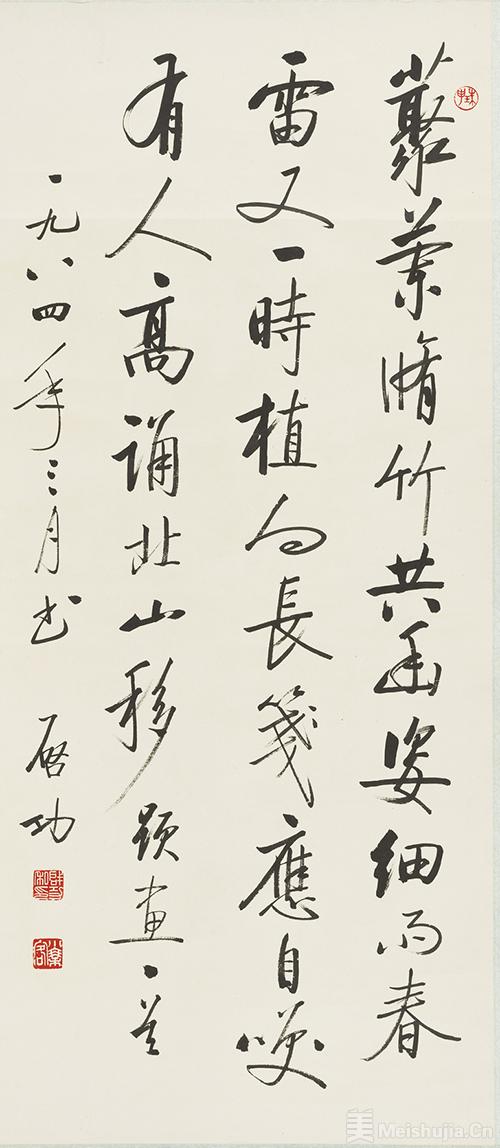 藂蘭脩竹共幽姿細雨春
雷又一時植向長箋應自咲
有人高誦北山移 題畫一首
一九八四年三月书 啓功
美 Meishujia.Cn